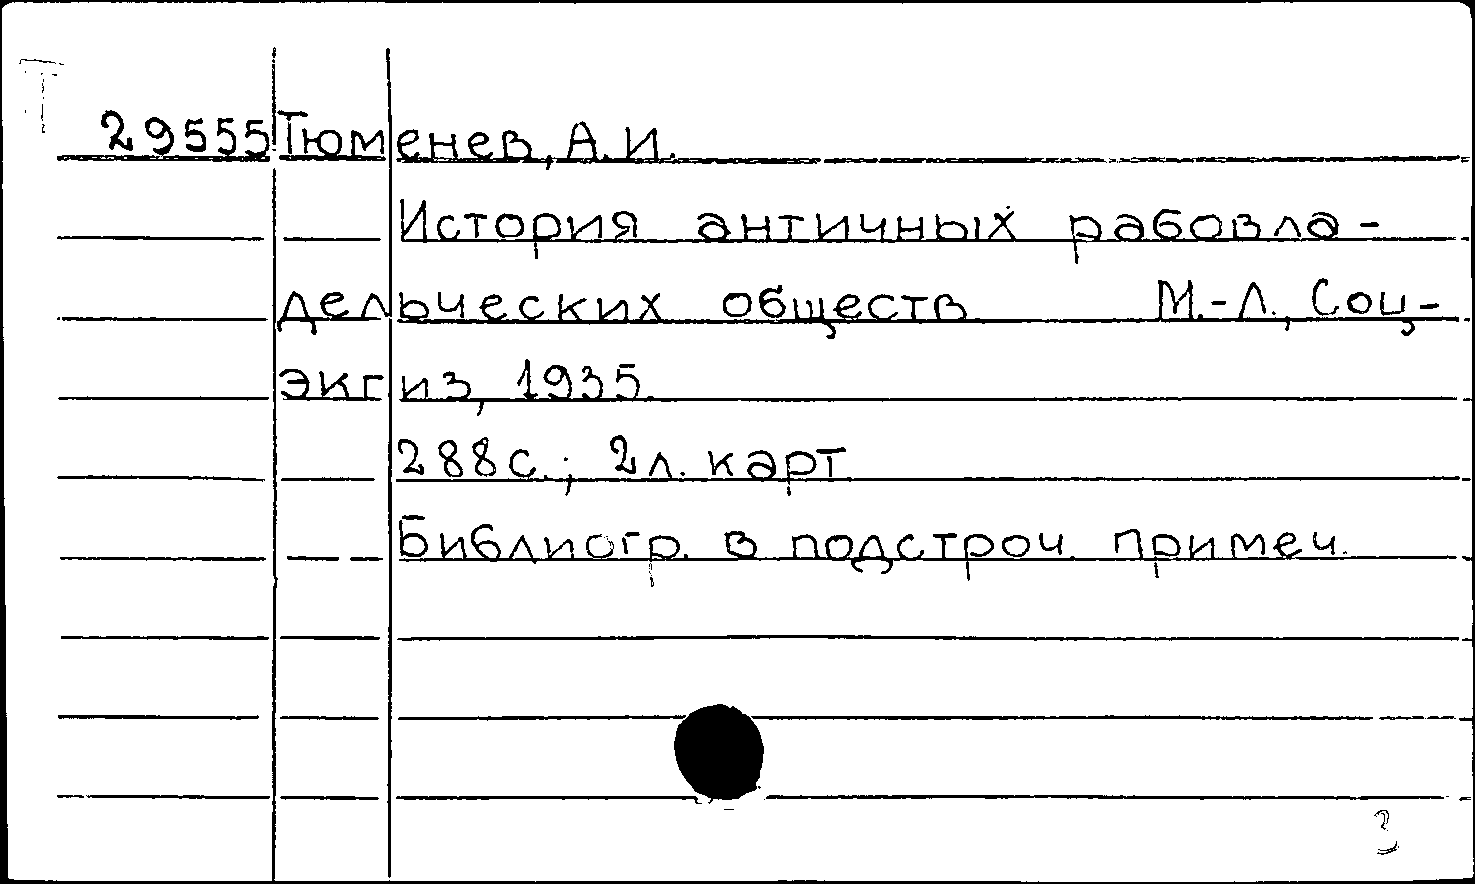 Т
29555 Тюменев, А.И.
История античных рабовла-
дельческих обществ М.-Л., Соц-
экгиз, 1935.
288с.; 2л. карт
Библиогр. в подстроч. примеч.
3